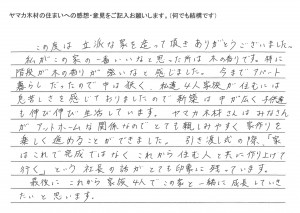 ヤマカ木材の住まいへの感想・意見をご記入お願いします。(何でも結構です)
この度は立派な家を造って頂きありがとうございました。
私がこの家の一番いいなと思った所は木の香りです。特に
階段が木の香りが強いなと感じました。今までアパート
暮らしだったので中は狭く、私達4人家族が住むには
見苦しさを感じておりましたので新築は中が広く子供達
も伸び伸び生活しています。ヤマカ木材さんはみなさん
がアットホームな関係なのでとても親しみやすく家作りを
楽しく進めることができました。引き渡し式の際、「家
はこれで完成ではなくこれから住む人と共に作り上げて
行く」という社長の話がとても印象に残っています。
最後にこれから家族4人でこの家と一緒に成長していき
たいと思います。